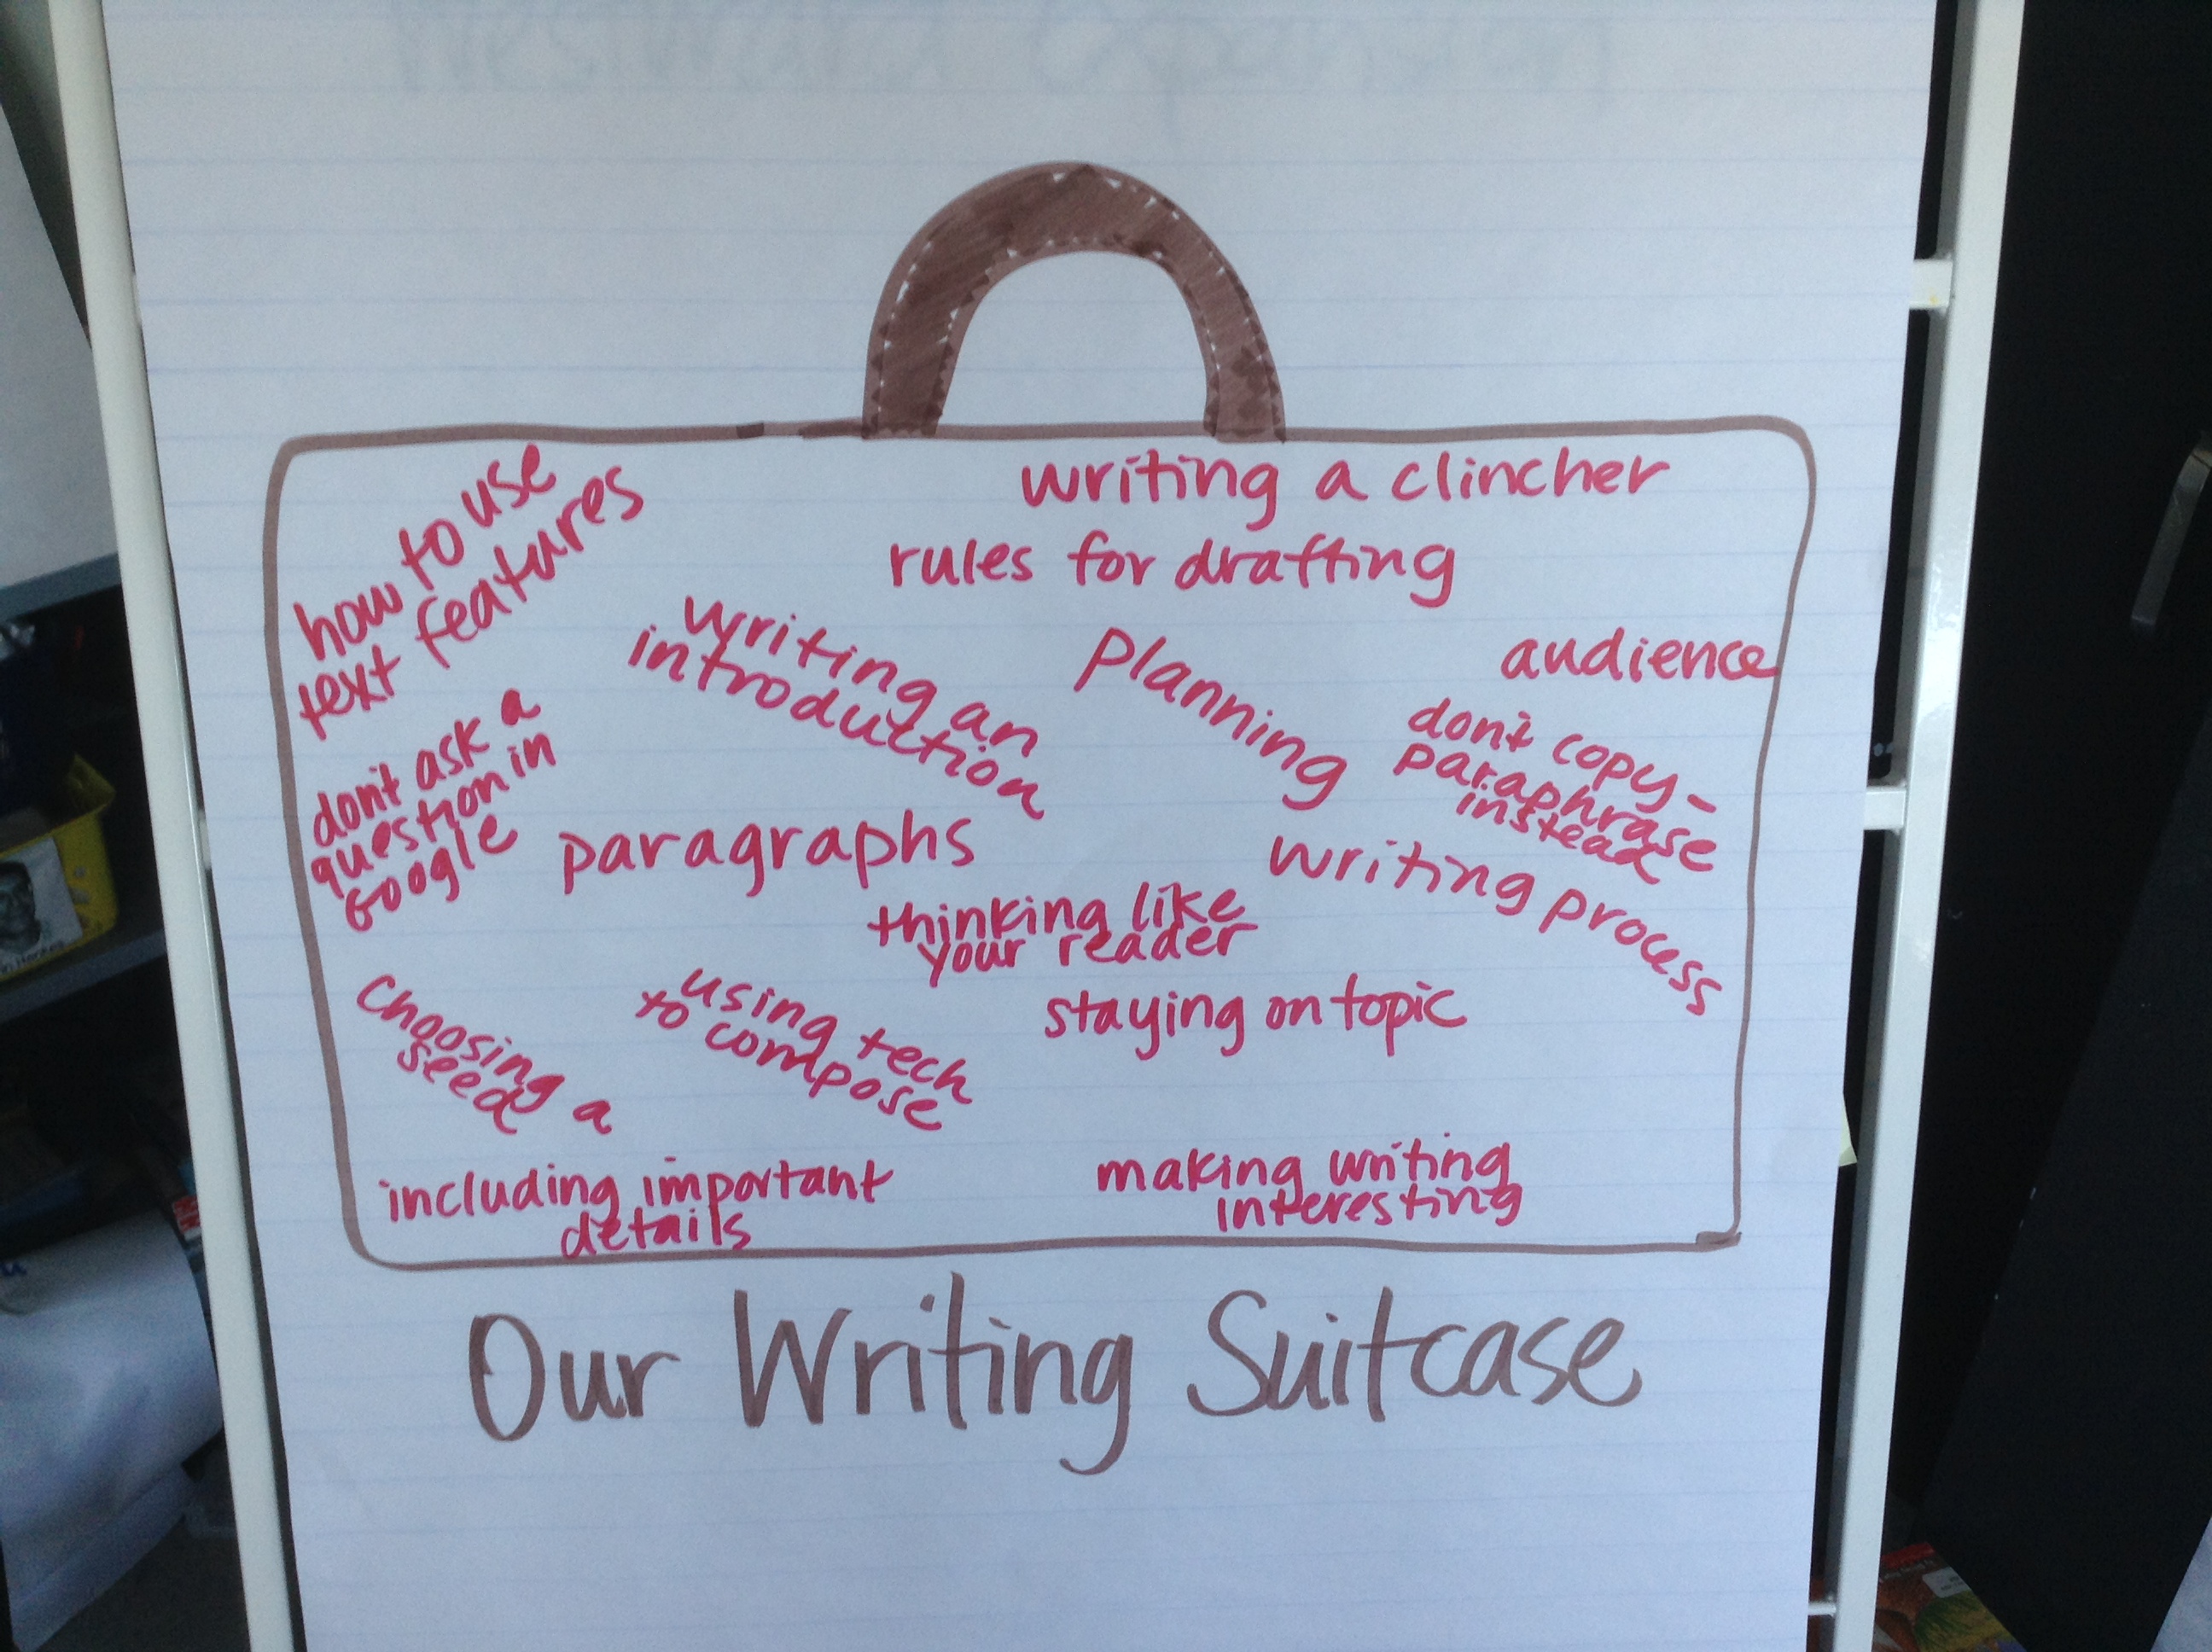 Westward Expansion
how to use
text features
writing a clincher
rules for drafting
writing an
introduction
planning
audience
don't ask a
question in
Google
don't copy-
paraphrase
instead
paragraphs
writing process
thinking like
your reader
choosing a
seed
using tech
to compose
staying on topic
including important
details
making writing
interesting
Our Writing Suitcase